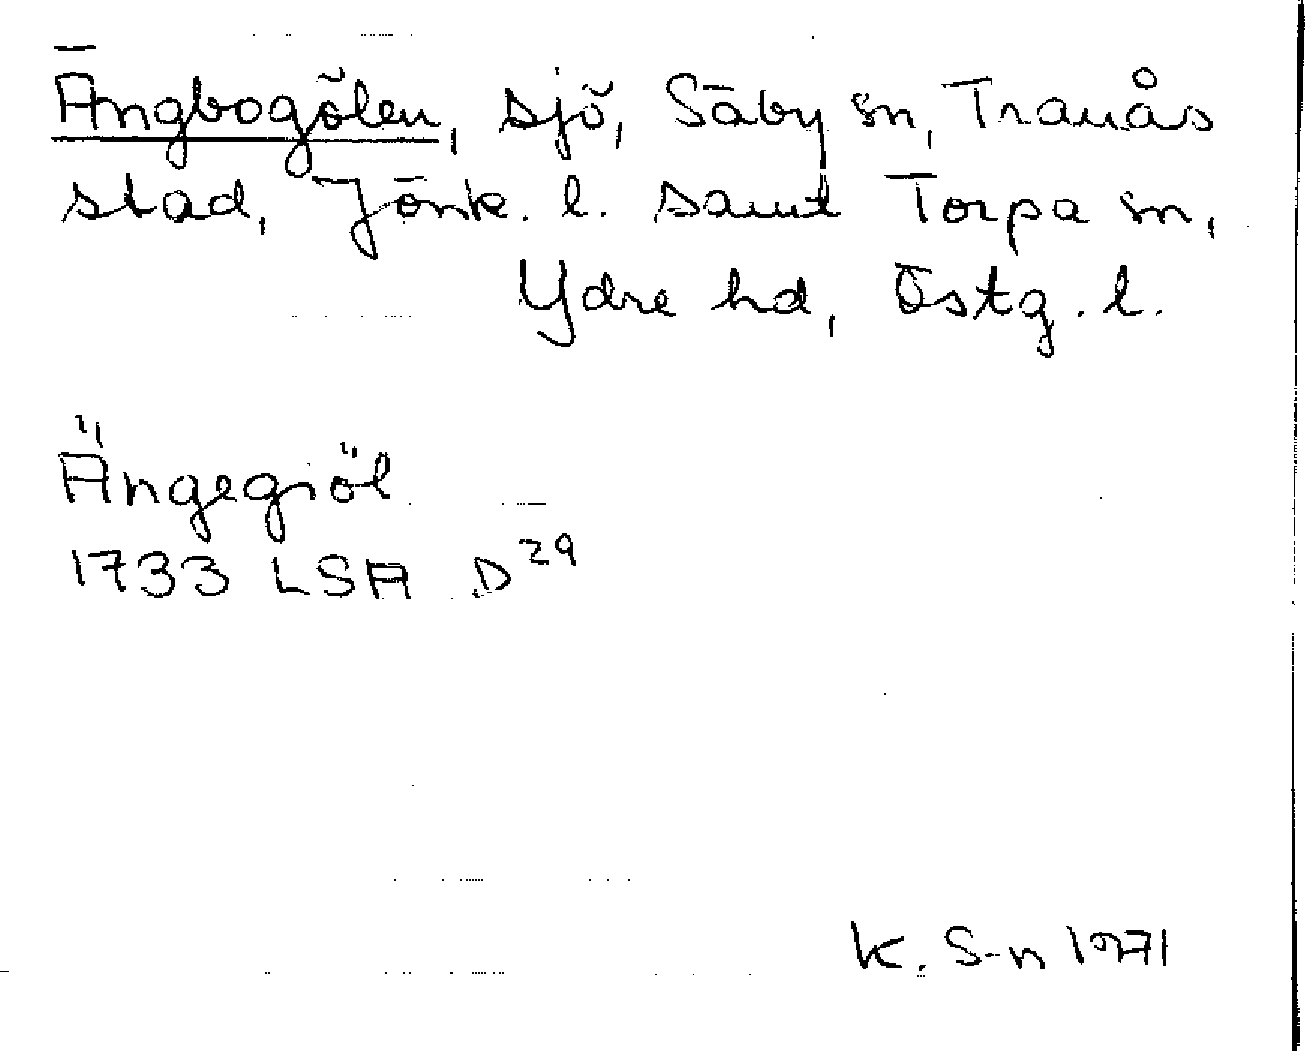 Ängbogölen, sjö, Säby sn, Tranås
stad, Jönk. l. samt Torpa sn,
Ydre hd, Östg. l.
Ängegiöl
1733 LSA D29
K. S-n 1971